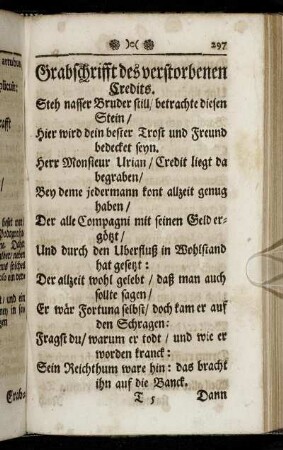 297
Grabschrifft des verstorbenen
Credits.
Steh nasser Bruder still / betrachte diesen
Stein /
Hier wird dein bester Trost und Freund
bedecket seyn.
Herr Monsieur Urian / Credit liegt da
begraben /
Bey deme jedermann kont allzeit genug
haben /
Der alle Compagni mit seinen Geld er-
götzt /
Und durch den Uberfluß in Wohlstand
hat gesetzt :
Der allzeit wohl gelebt / daß man auch
sollte sagen /
Er wär Fortuna selbst / doch kam er auf
den Schragen:
Fragst du / warum er todt / und wie er
worden kranck :
Sein Reichthum ware hin : das bracht
ihn auf die Banck.
T 5 Dann